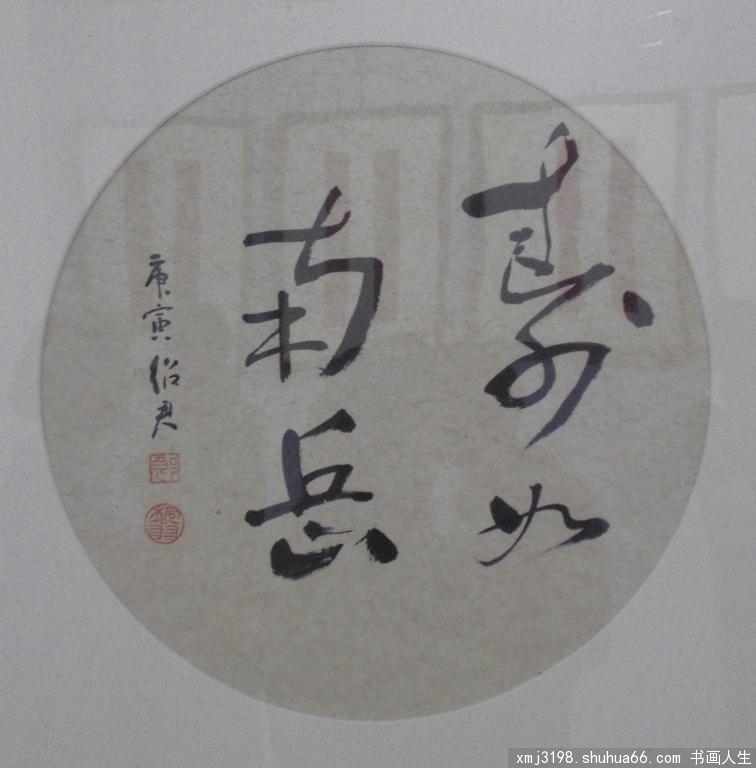 壽如
南岳
庚寅绍君
xmj3198.shuhua66.com 书画人生